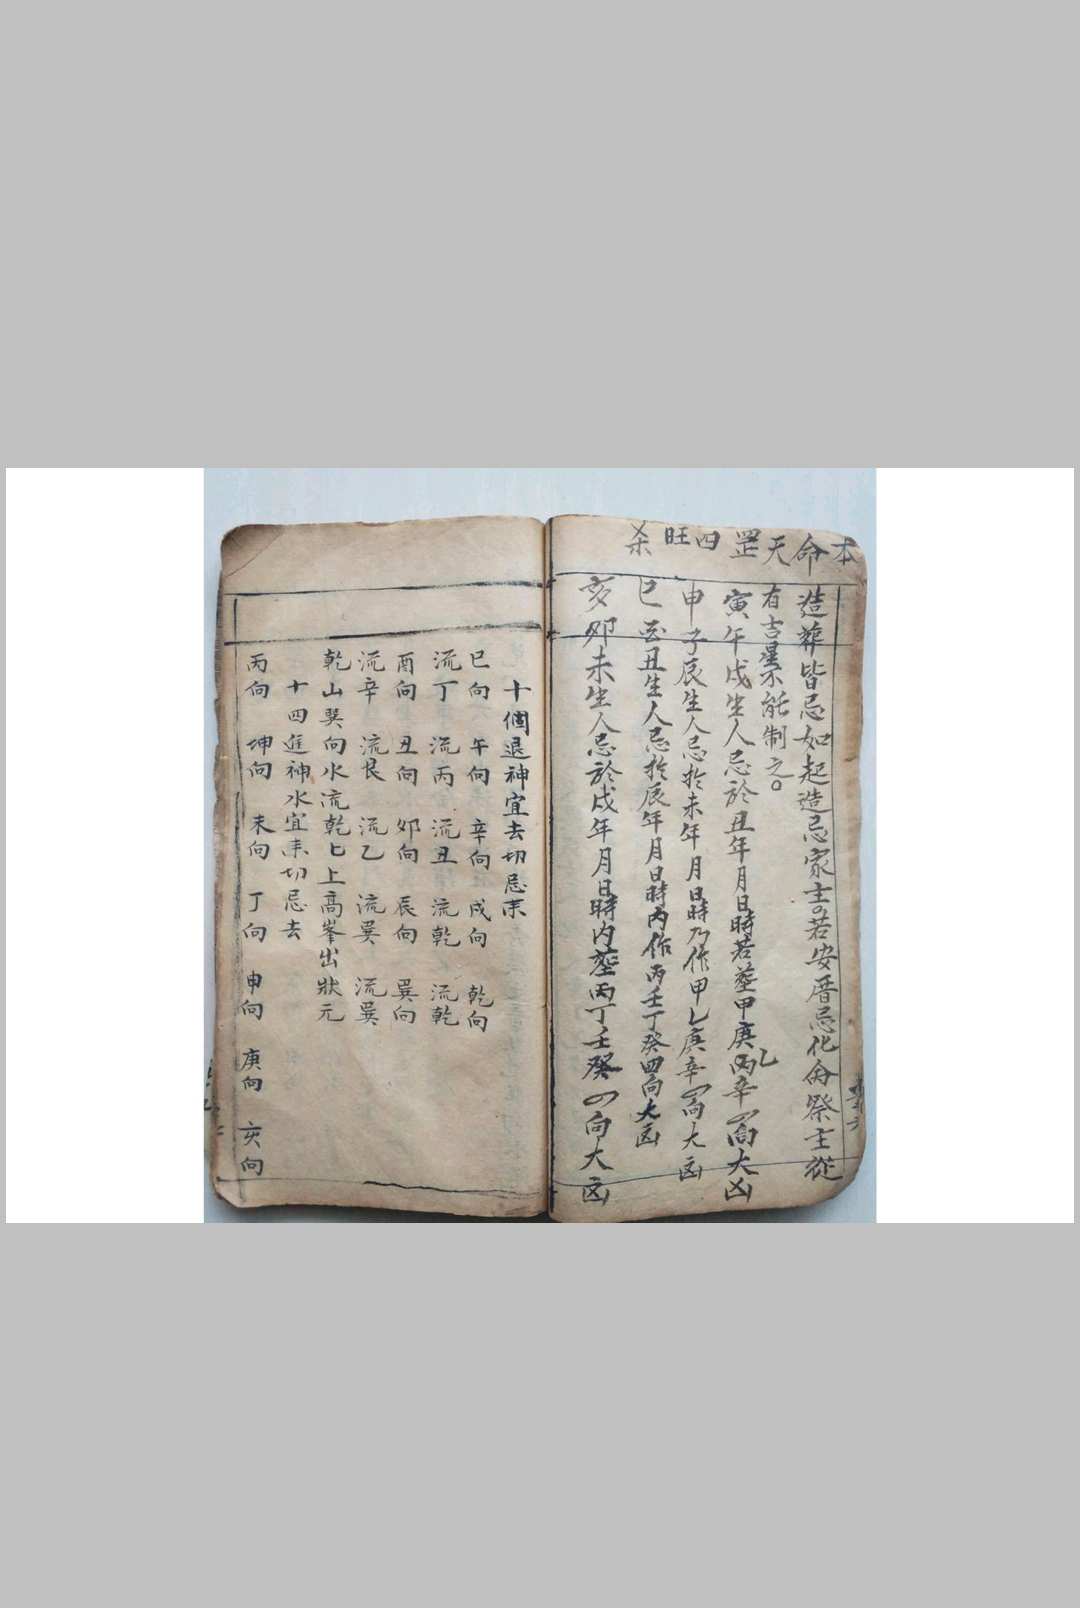 本命天罡四旺杀
造葬皆忌如起造忌家主。若安厝忌化命祭主從
有吉星不能制之。
寅午戌生人忌於丑年月日時若塟甲庚丙辛四向大凶
乙
申子辰生人忌於未年月日時乃作甲乙庚辛四向大凶
巳酉丑生人忌於辰年月日時內作丙壬丁癸四向大凶
亥卯未生人忌於戌年月日時內塟丙丁壬癸四向大凶
十個退神宜去切忌来
巳向 午向 辛向 戌向 乾向
流丁 流丙 流丑 流乾 流乾
酉向 丑向 卯向 辰向 巽向
流辛 流艮 流乙 流巽 流巽
乾山巽向水流乾匕上高峯出狀元
十四進神水宜来切忌去
丙向 坤向 未向 丁向 申向 庚向 亥向